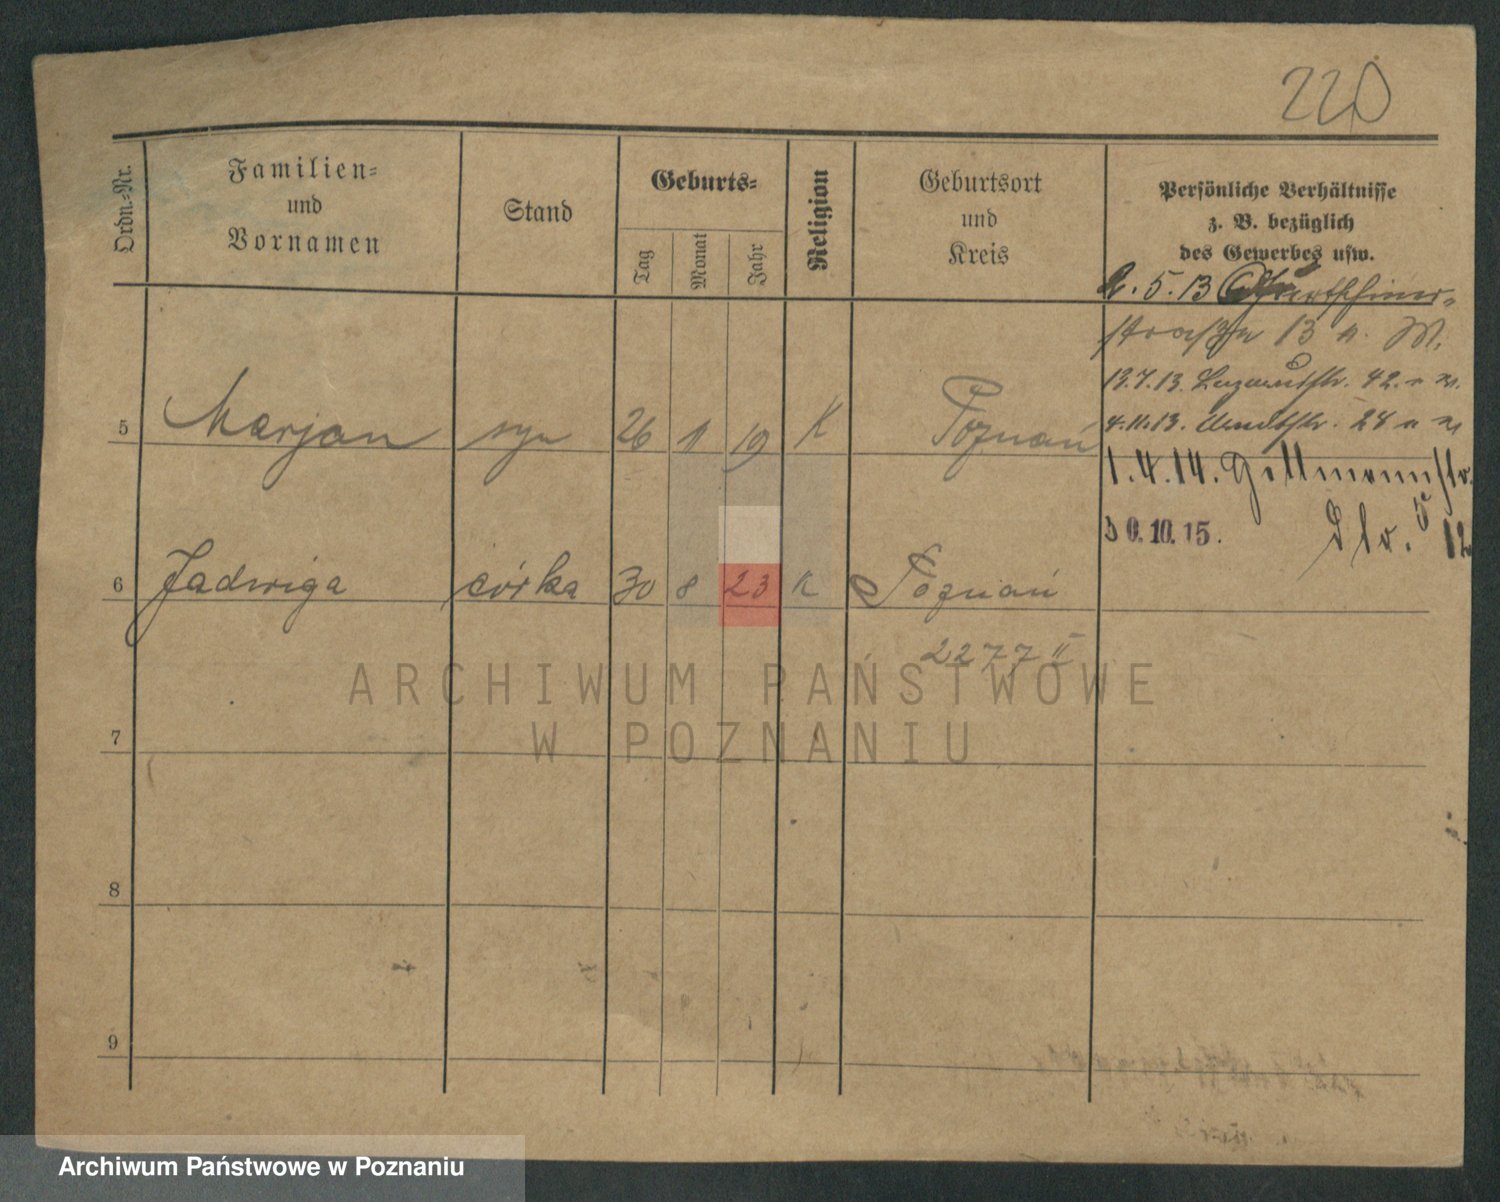 220
Ordn.-Nr.
Familien-
und
Vornamen
Stand
Geburts-
Tag
Monat
Jahr
Religion
Geburtsort
und
Kreis
Persönliche Verhältnisse
z. B. bezüglich
des Gewerbes usw.
2. 5. 13
straße 13 a. M.
13.7.13. 42.
4.11.13. 24
1. 4. 14.
30.10.15. 12.
5 Marjan syn 26 11 19 K Poznań
6 Jadwiga córka 30 8 23 K Poznań
2277 II
7
8
9
ARCHIWUM PAŃSTWOWE
W POZNANIU
Archiwum Państwowe w Poznaniu